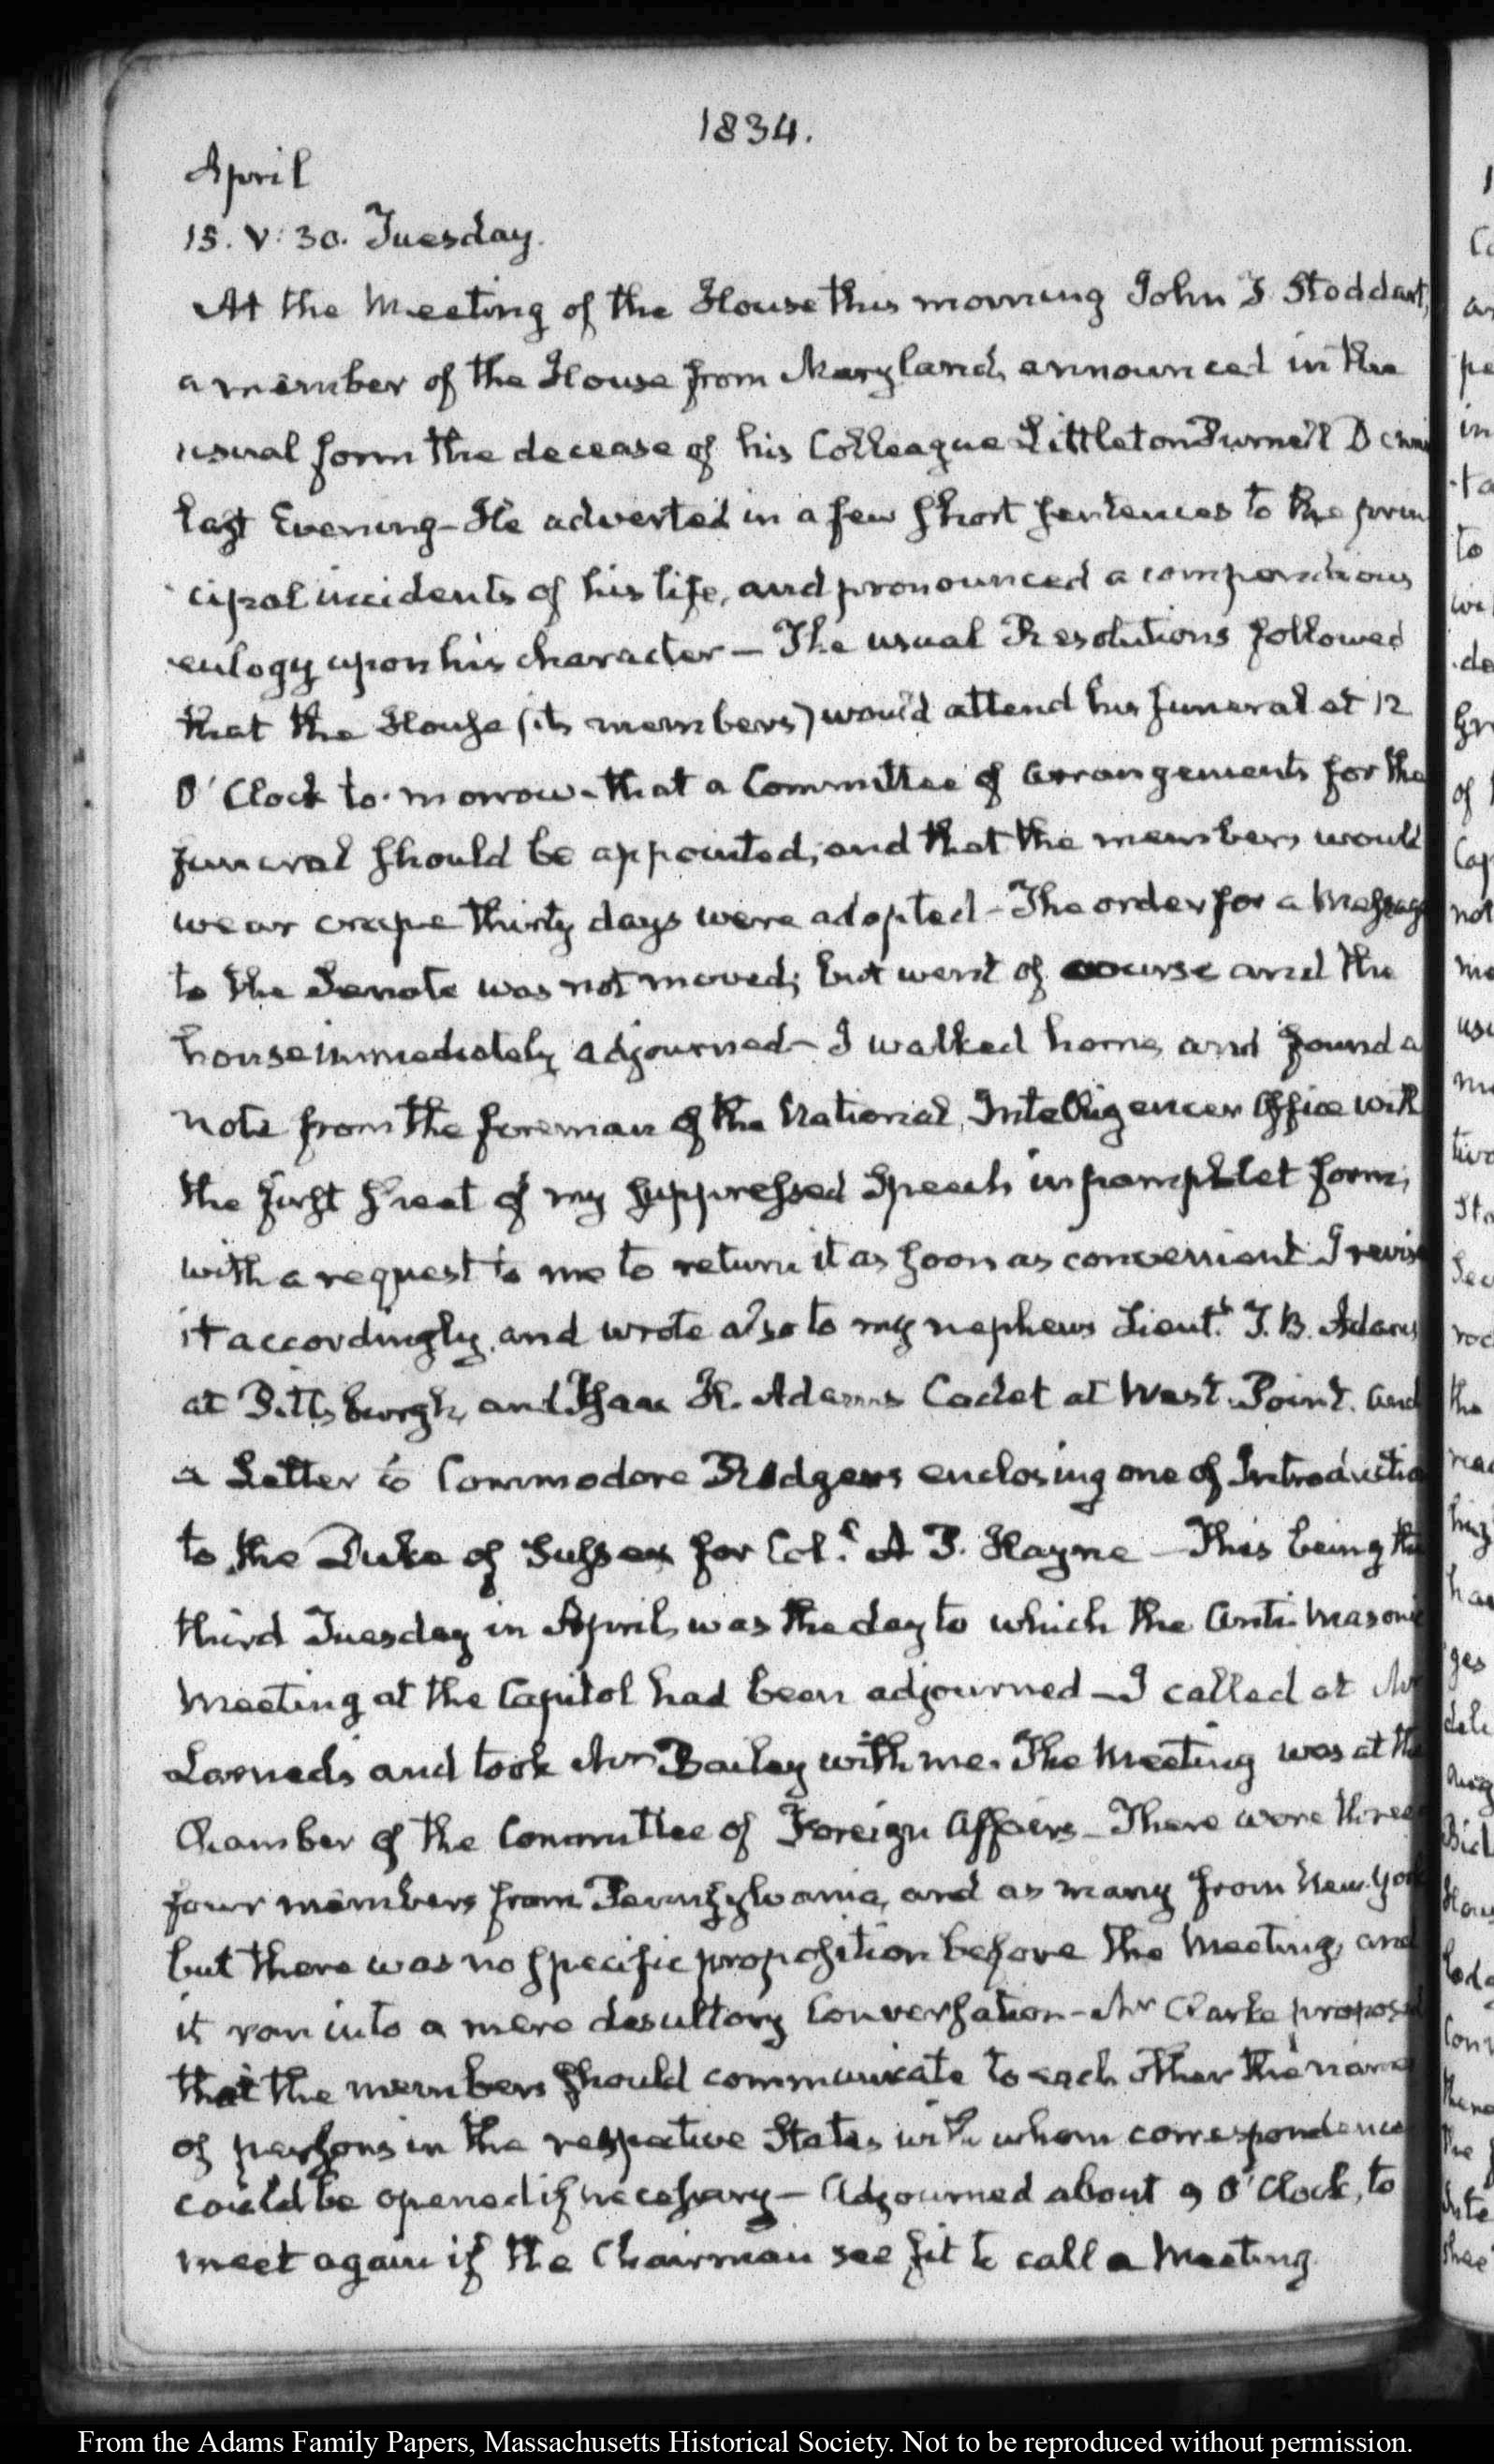 1834.
April
15. V: 30. Tuesday.
At the Meeting of the House this morning John T. Stoddart,
a member of the House from Maryland, announced in the
usual form the decease of his Colleague Littleton Purnell Denni
last Evening – He adverted in a few short sentences to the prin
cipal incidents of his life, and pronounced a compendious
eulogy upon his character – The usual Resolutions followed
that the House (its members) would attend his funeral at 12
O'Clock to-morrow – that a Committee of arrangements for the
funeral should be appointed; and that the members would
wear crape thirty days were adopted – The order for a Message
to the Senate was not moved; but went of course and the
house immediately adjourned – I walked home, and found a
note from the foreman of the National Intelligencer Office with
the first sheet of my suppressed Speech in pamphlet form;
with a request to me to return it as soon as convenient. I revise
it accordingly, and wrote also to my nephews Lieut.t T. B. Adams
at Pittsburgh, and Isaac H. Adams Cadet at West-Point. and
a Letter to Commodore Rodgers enclosing one of Introductio
to the Duke of Sussex for Col. A P. Hayne – This being the
third Tuesday in April, was the day to which the Anti-Masonic
Meeting at the Capitol had been adjourned – I called at Mr
Larned's and took Mr Bailey with me. The Meeting was at the
Chamber of the Committee of Foreign Affairs – There were three
four members from Pennsylvania, and as many from New-York
but there was no specific proposition before the Meeting, and
it ran into a mere desultory Conversation – Mr Clarke propos
that the members should communicate to each other the name
of persons in the respective States with whom correspondence
could be opened if necessary – Adjourned about 9 O'Clock, to
meet again if the Chairman see fit to call a Meeting.
From the Adams Family Papers, Massachusetts Historical Society. Not to be reproduced without permission.